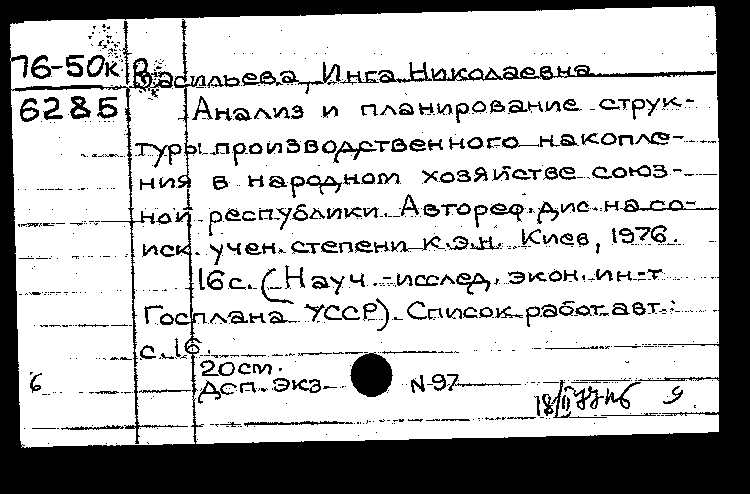 76-50к Васильева, Инга Николаевна
6285 Анализ и планирование струк-
туры производственного накопле-
ния в народном хозяйстве союз-
ной республики. Автореф. дис. на со-
иск. учен. степени к.э.н. Киев, 1976.
16с. (Науч.-исслед. экон. ин-т
Госплана УССР). Список работ авт.:
с.16.
20cm.
б Дсп. экз. N-97
18/II